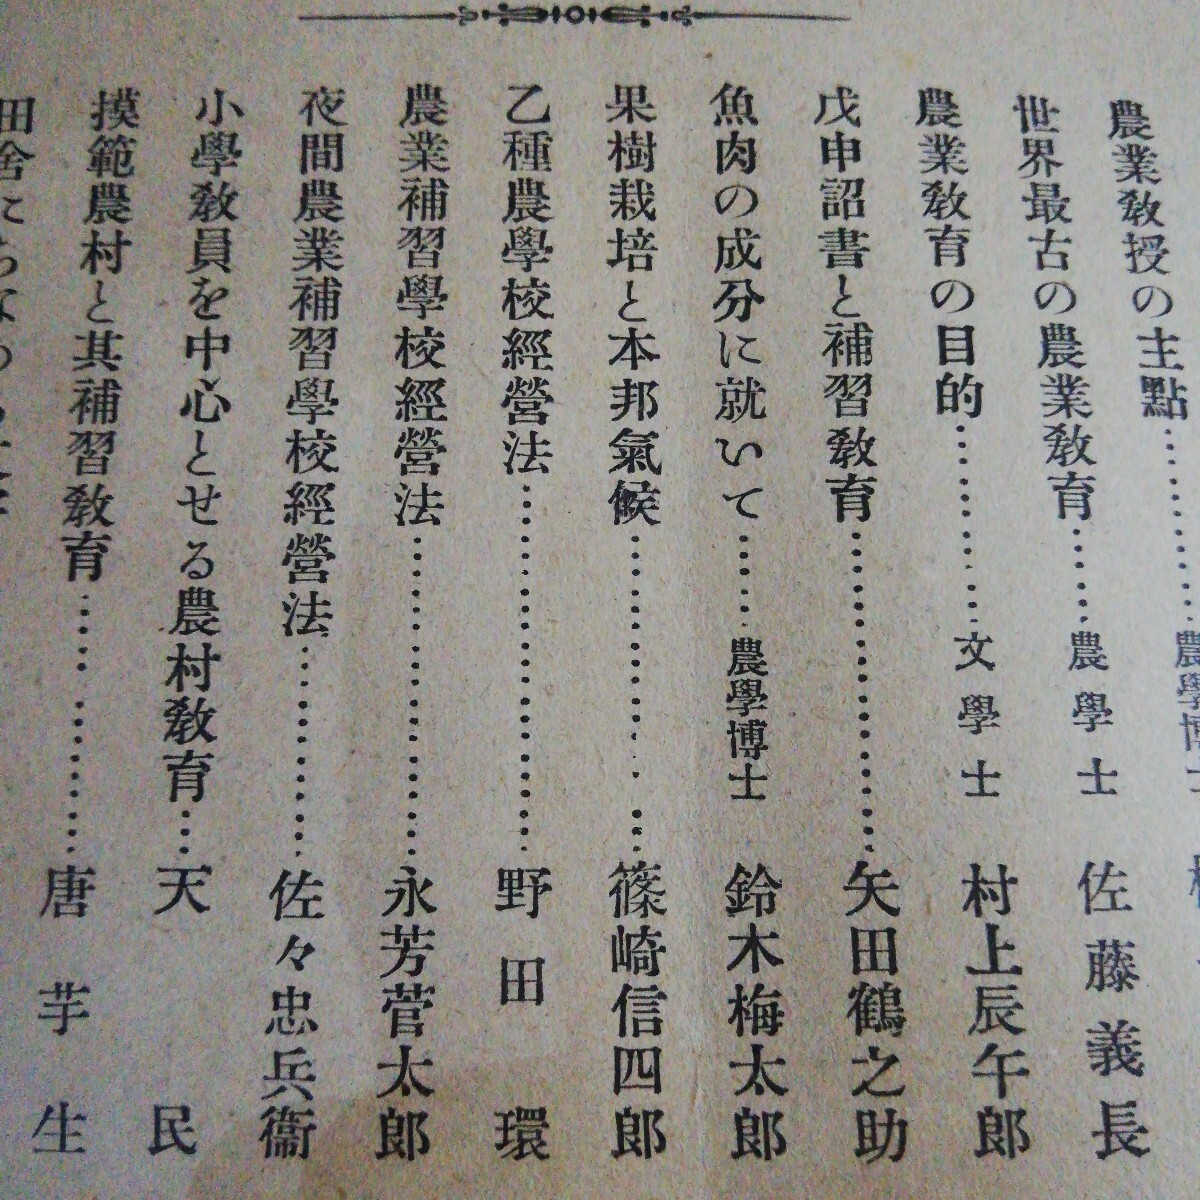 農業敎授の主點…………農學博士
世界最古の農業敎育……農學士 佐藤義長
農業敎育の目的…………文學士 村上辰午郎
戊申詔書と補習敎育…………………矢田鶴之助
魚肉の成分に就いて……農學博士 鈴木梅太郎
果樹栽培と本邦氣候…………………篠崎信四郎
乙種農學校經營法……………………野田環
農業補習學校經營法…………………永芳菅太郎
夜間農業補習學校經營法……………佐々忠兵衞
小學敎員を中心とせる農村敎育…天民
摸範農村と其補習敎育………………唐芋生
田舍に